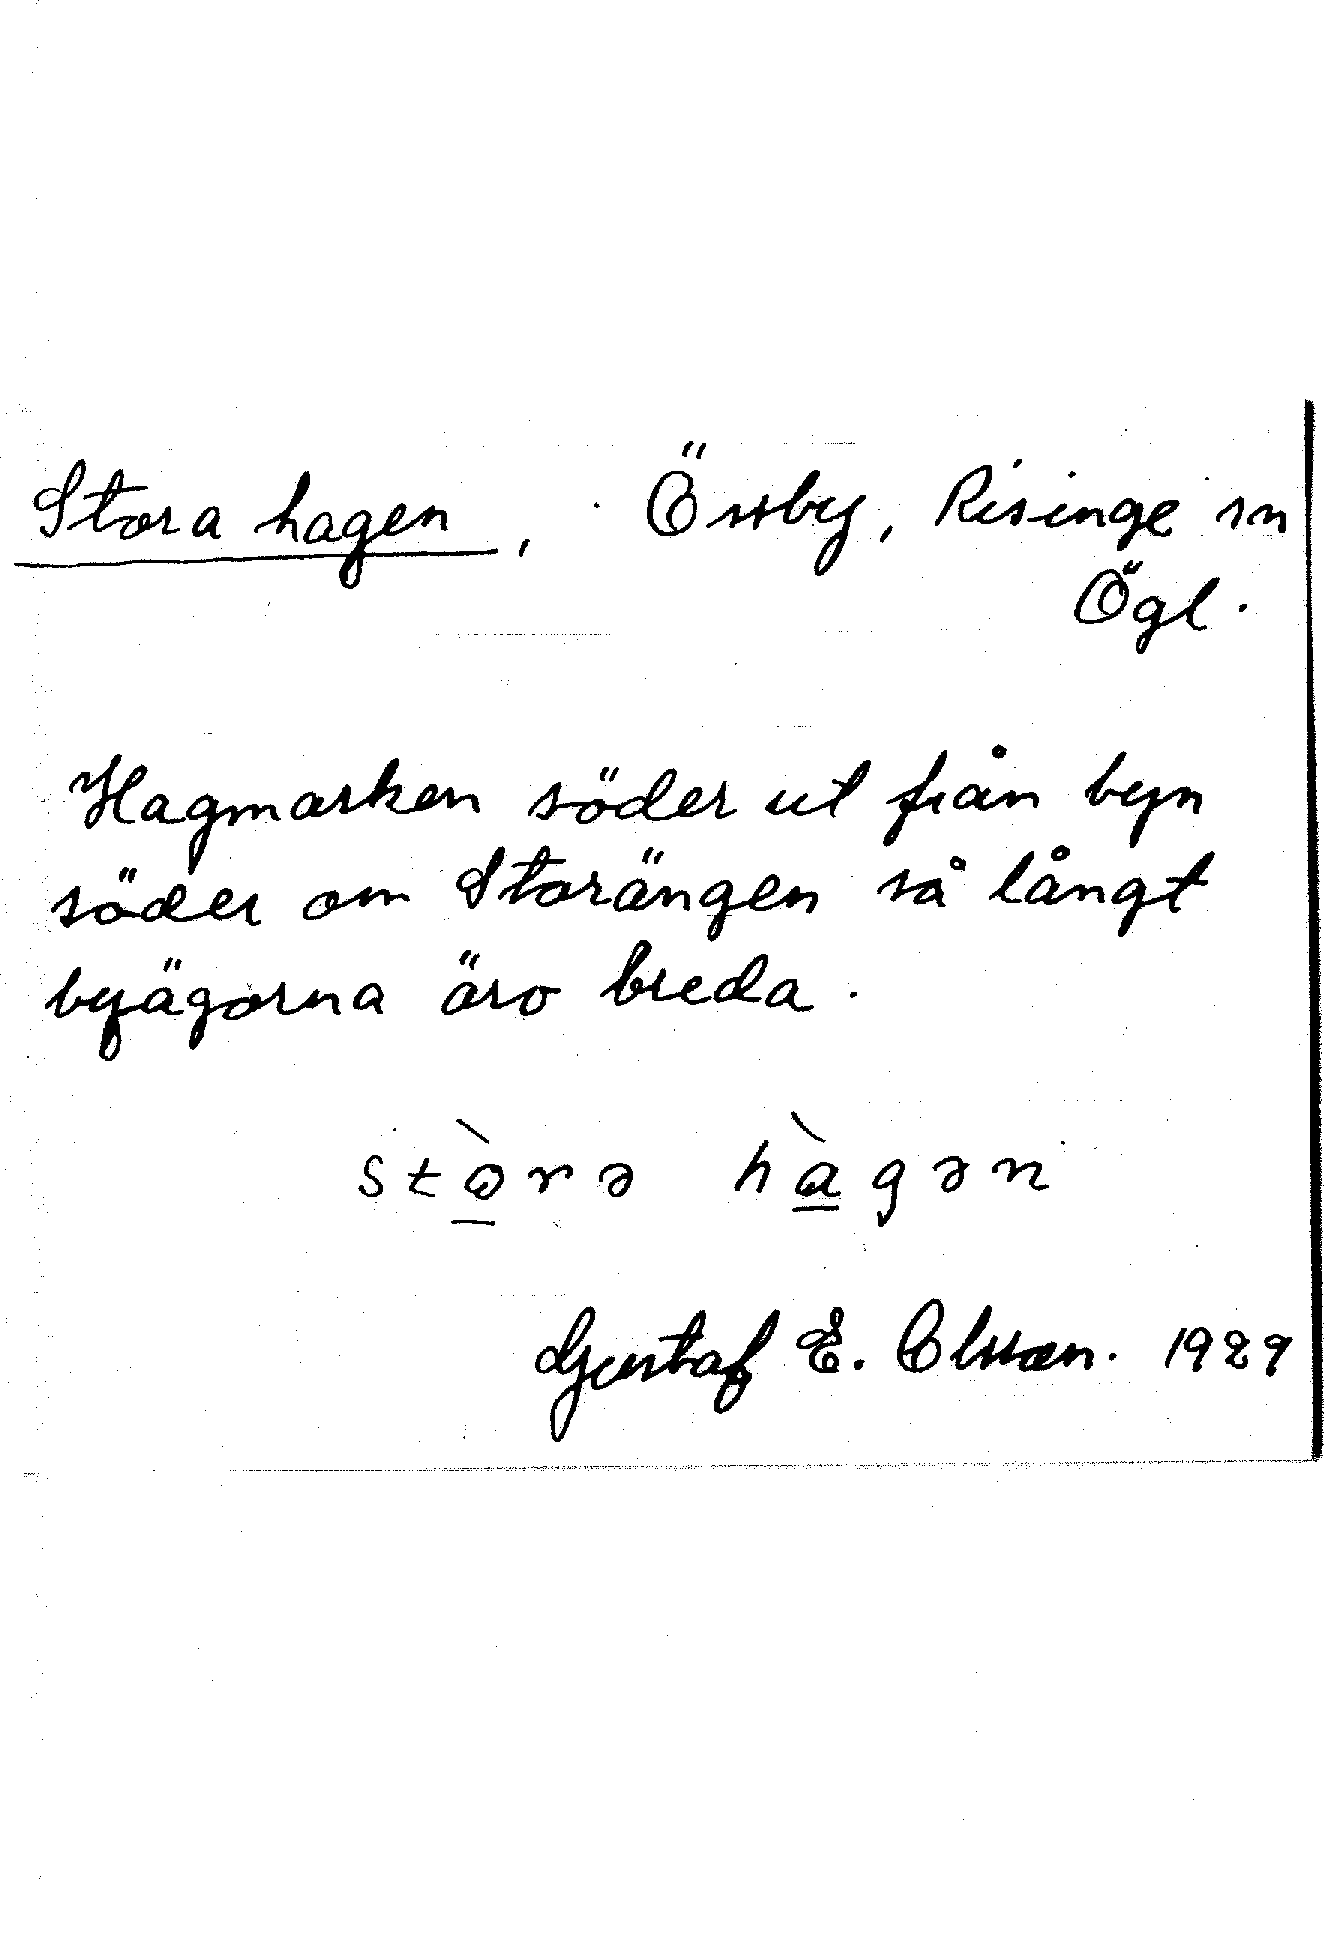 Stora hagen, Össby, Risinge sn
Ögl.
Hagmarken söder ut från byn
söder om Storängen så långt
byägorna äro breda.
stò̱rə hà̱gən
Gustaf E. Olsson. 1929